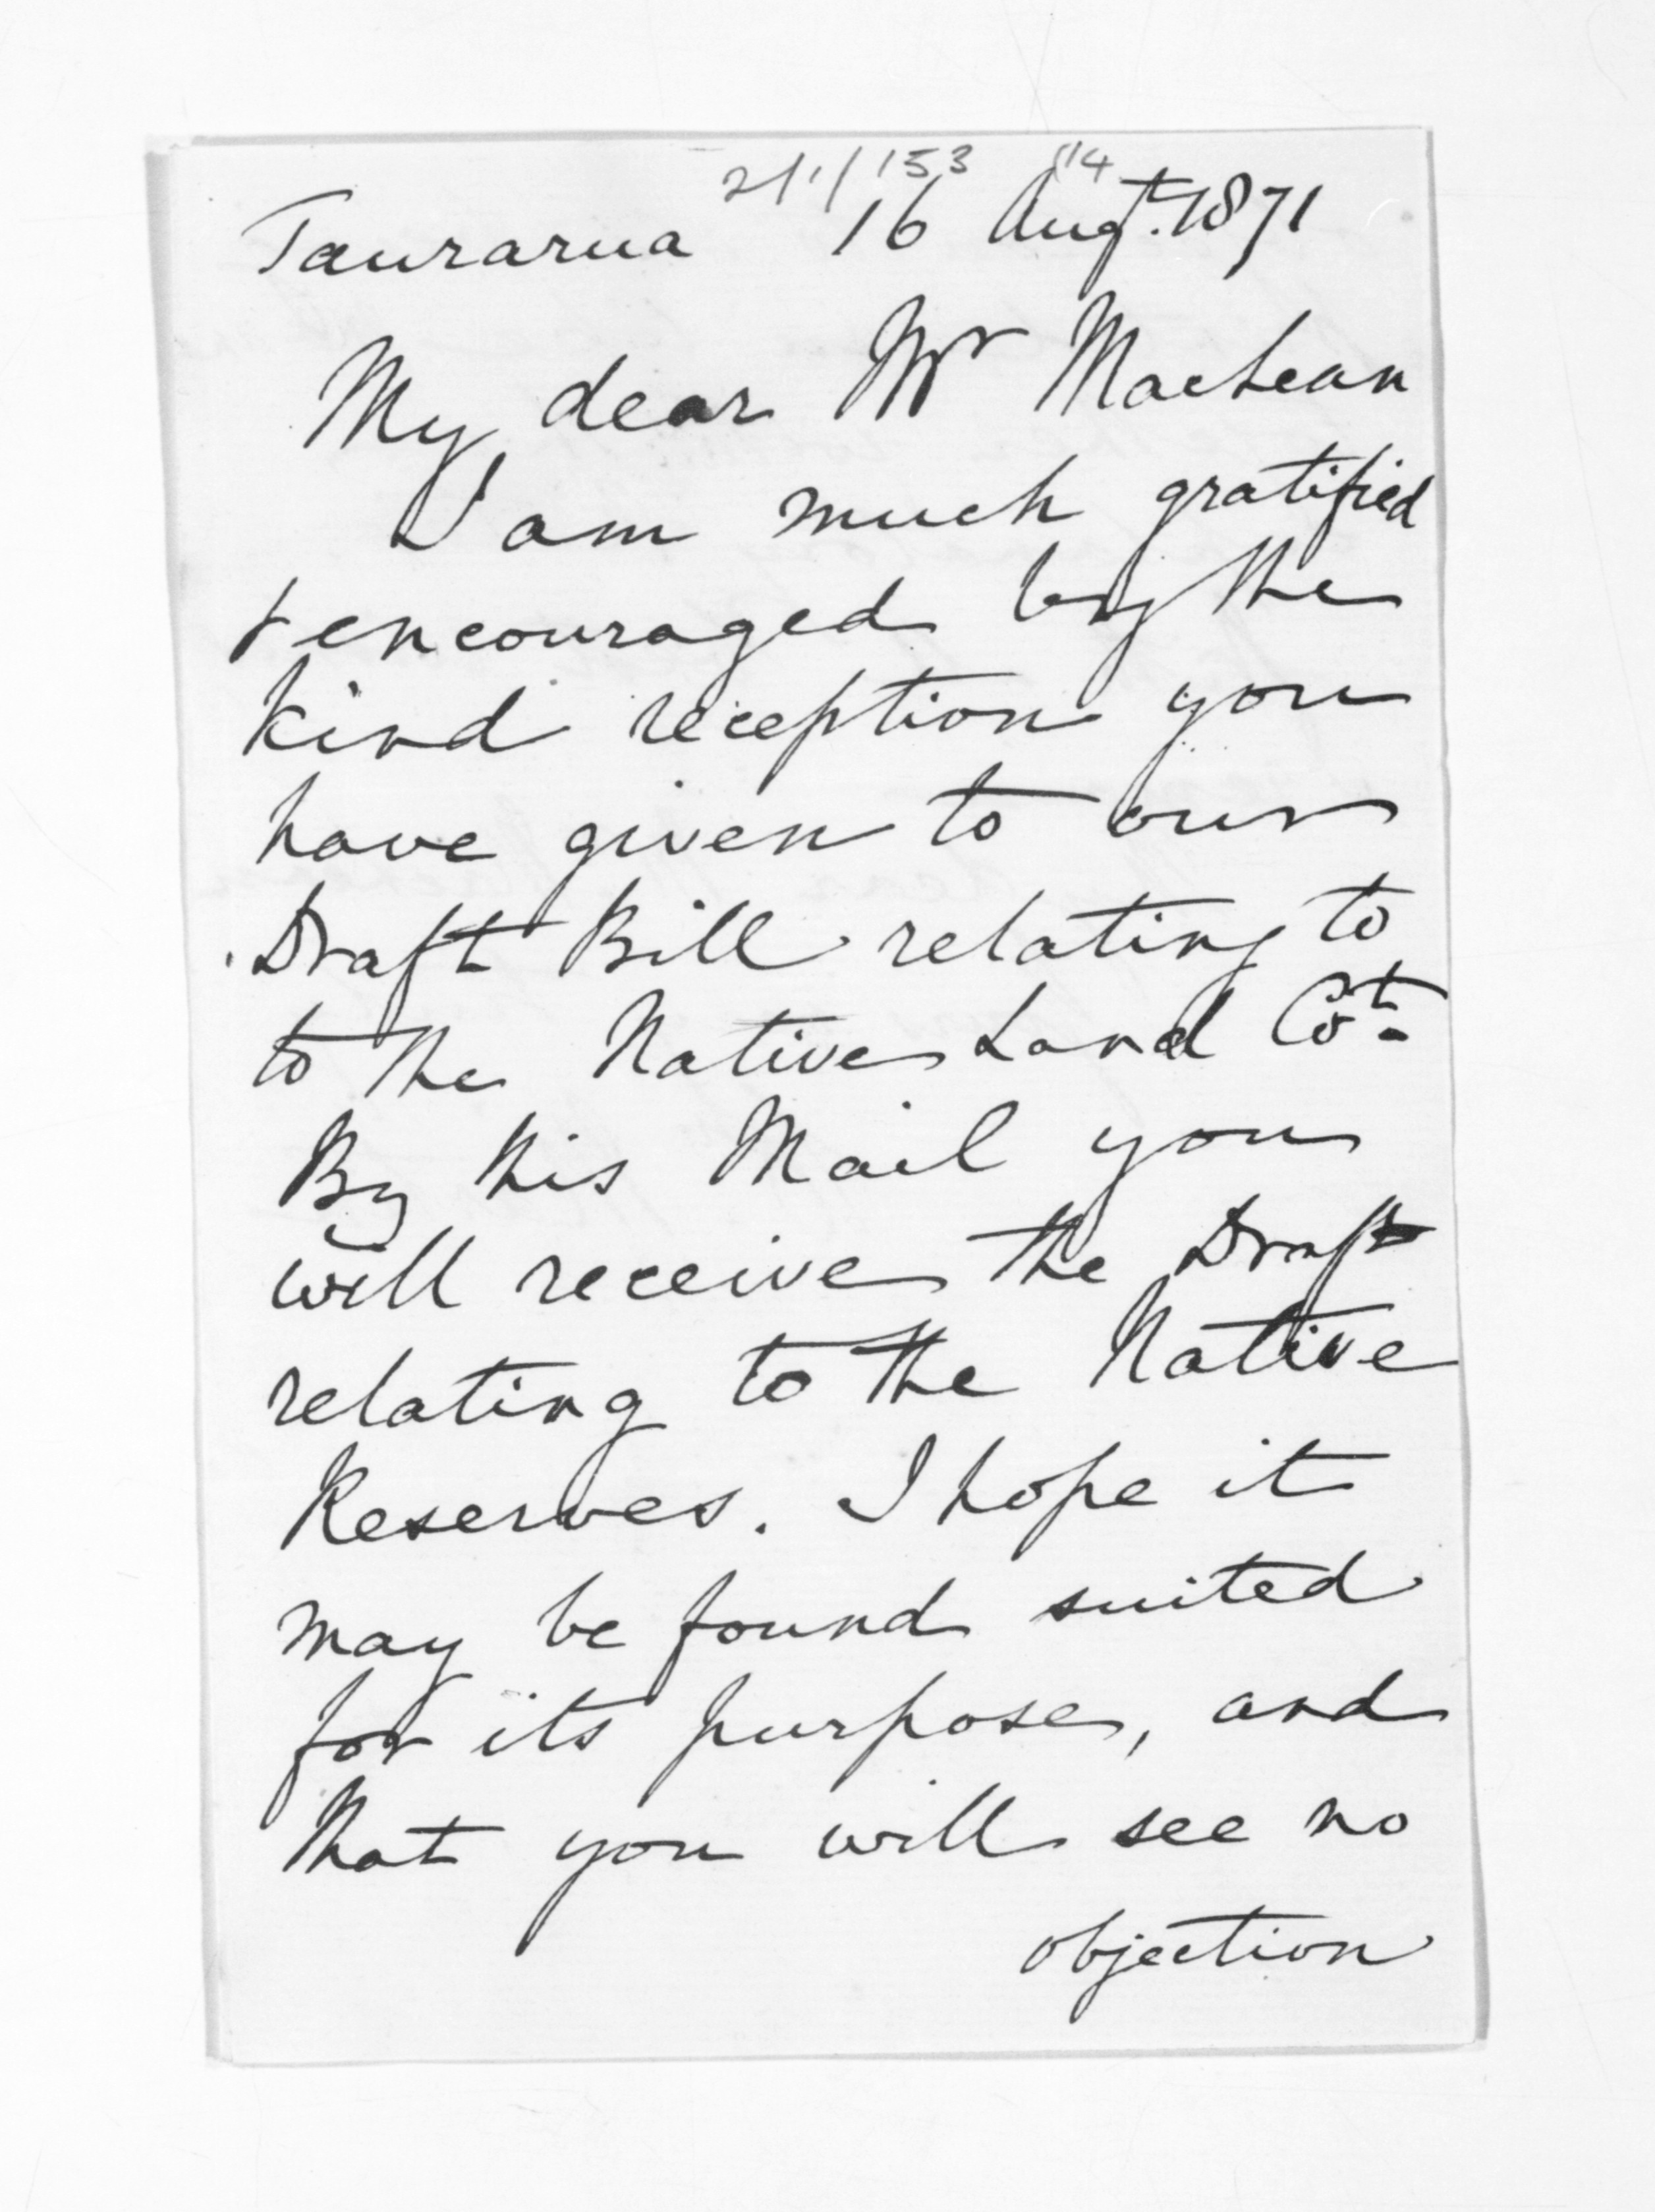 2/1/153 14
Taurarua 16 Augt. 1871
My dear Mr MacLean
I am much gratified
& encouraged by the
kind reception you
have given to our
Draft Bill relating to
to the Native Land Cot.
By this Mail you
will receive the Draft
relating to the Native
Reserves. I hope it
may be found suited
for its purpose, and
that you will see no
objection